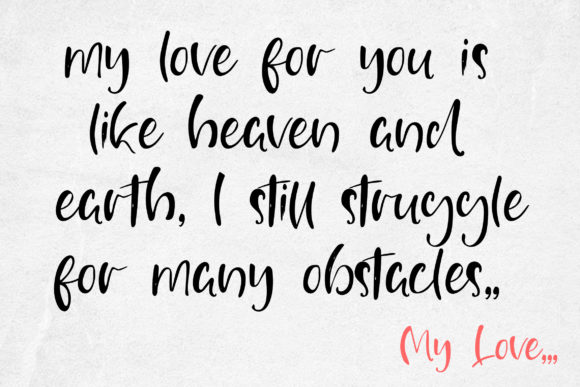 my love for you is
like heaven and
earth, I still struggle
for many obstacles,,
My Love,,,